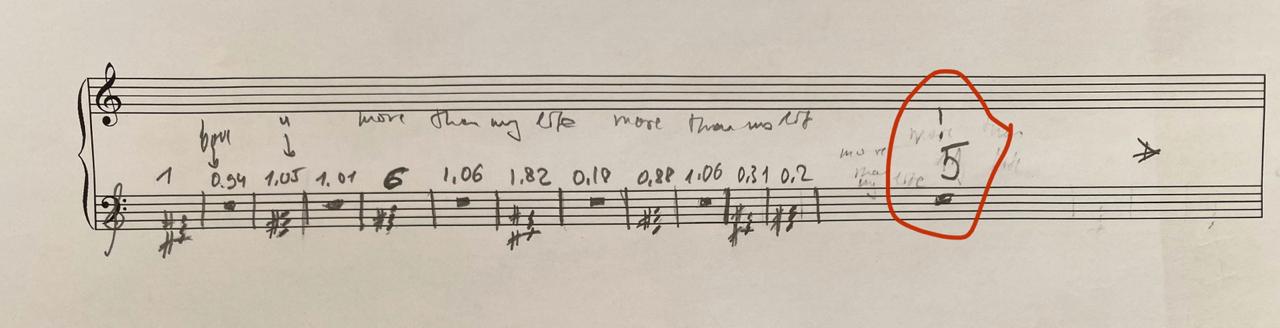 more than my life more than my lif
1 0.94 1.05 1.01 6 1.06 1.82 0.18 0.88 1.06 0.31 0.2
more
than
my life
5